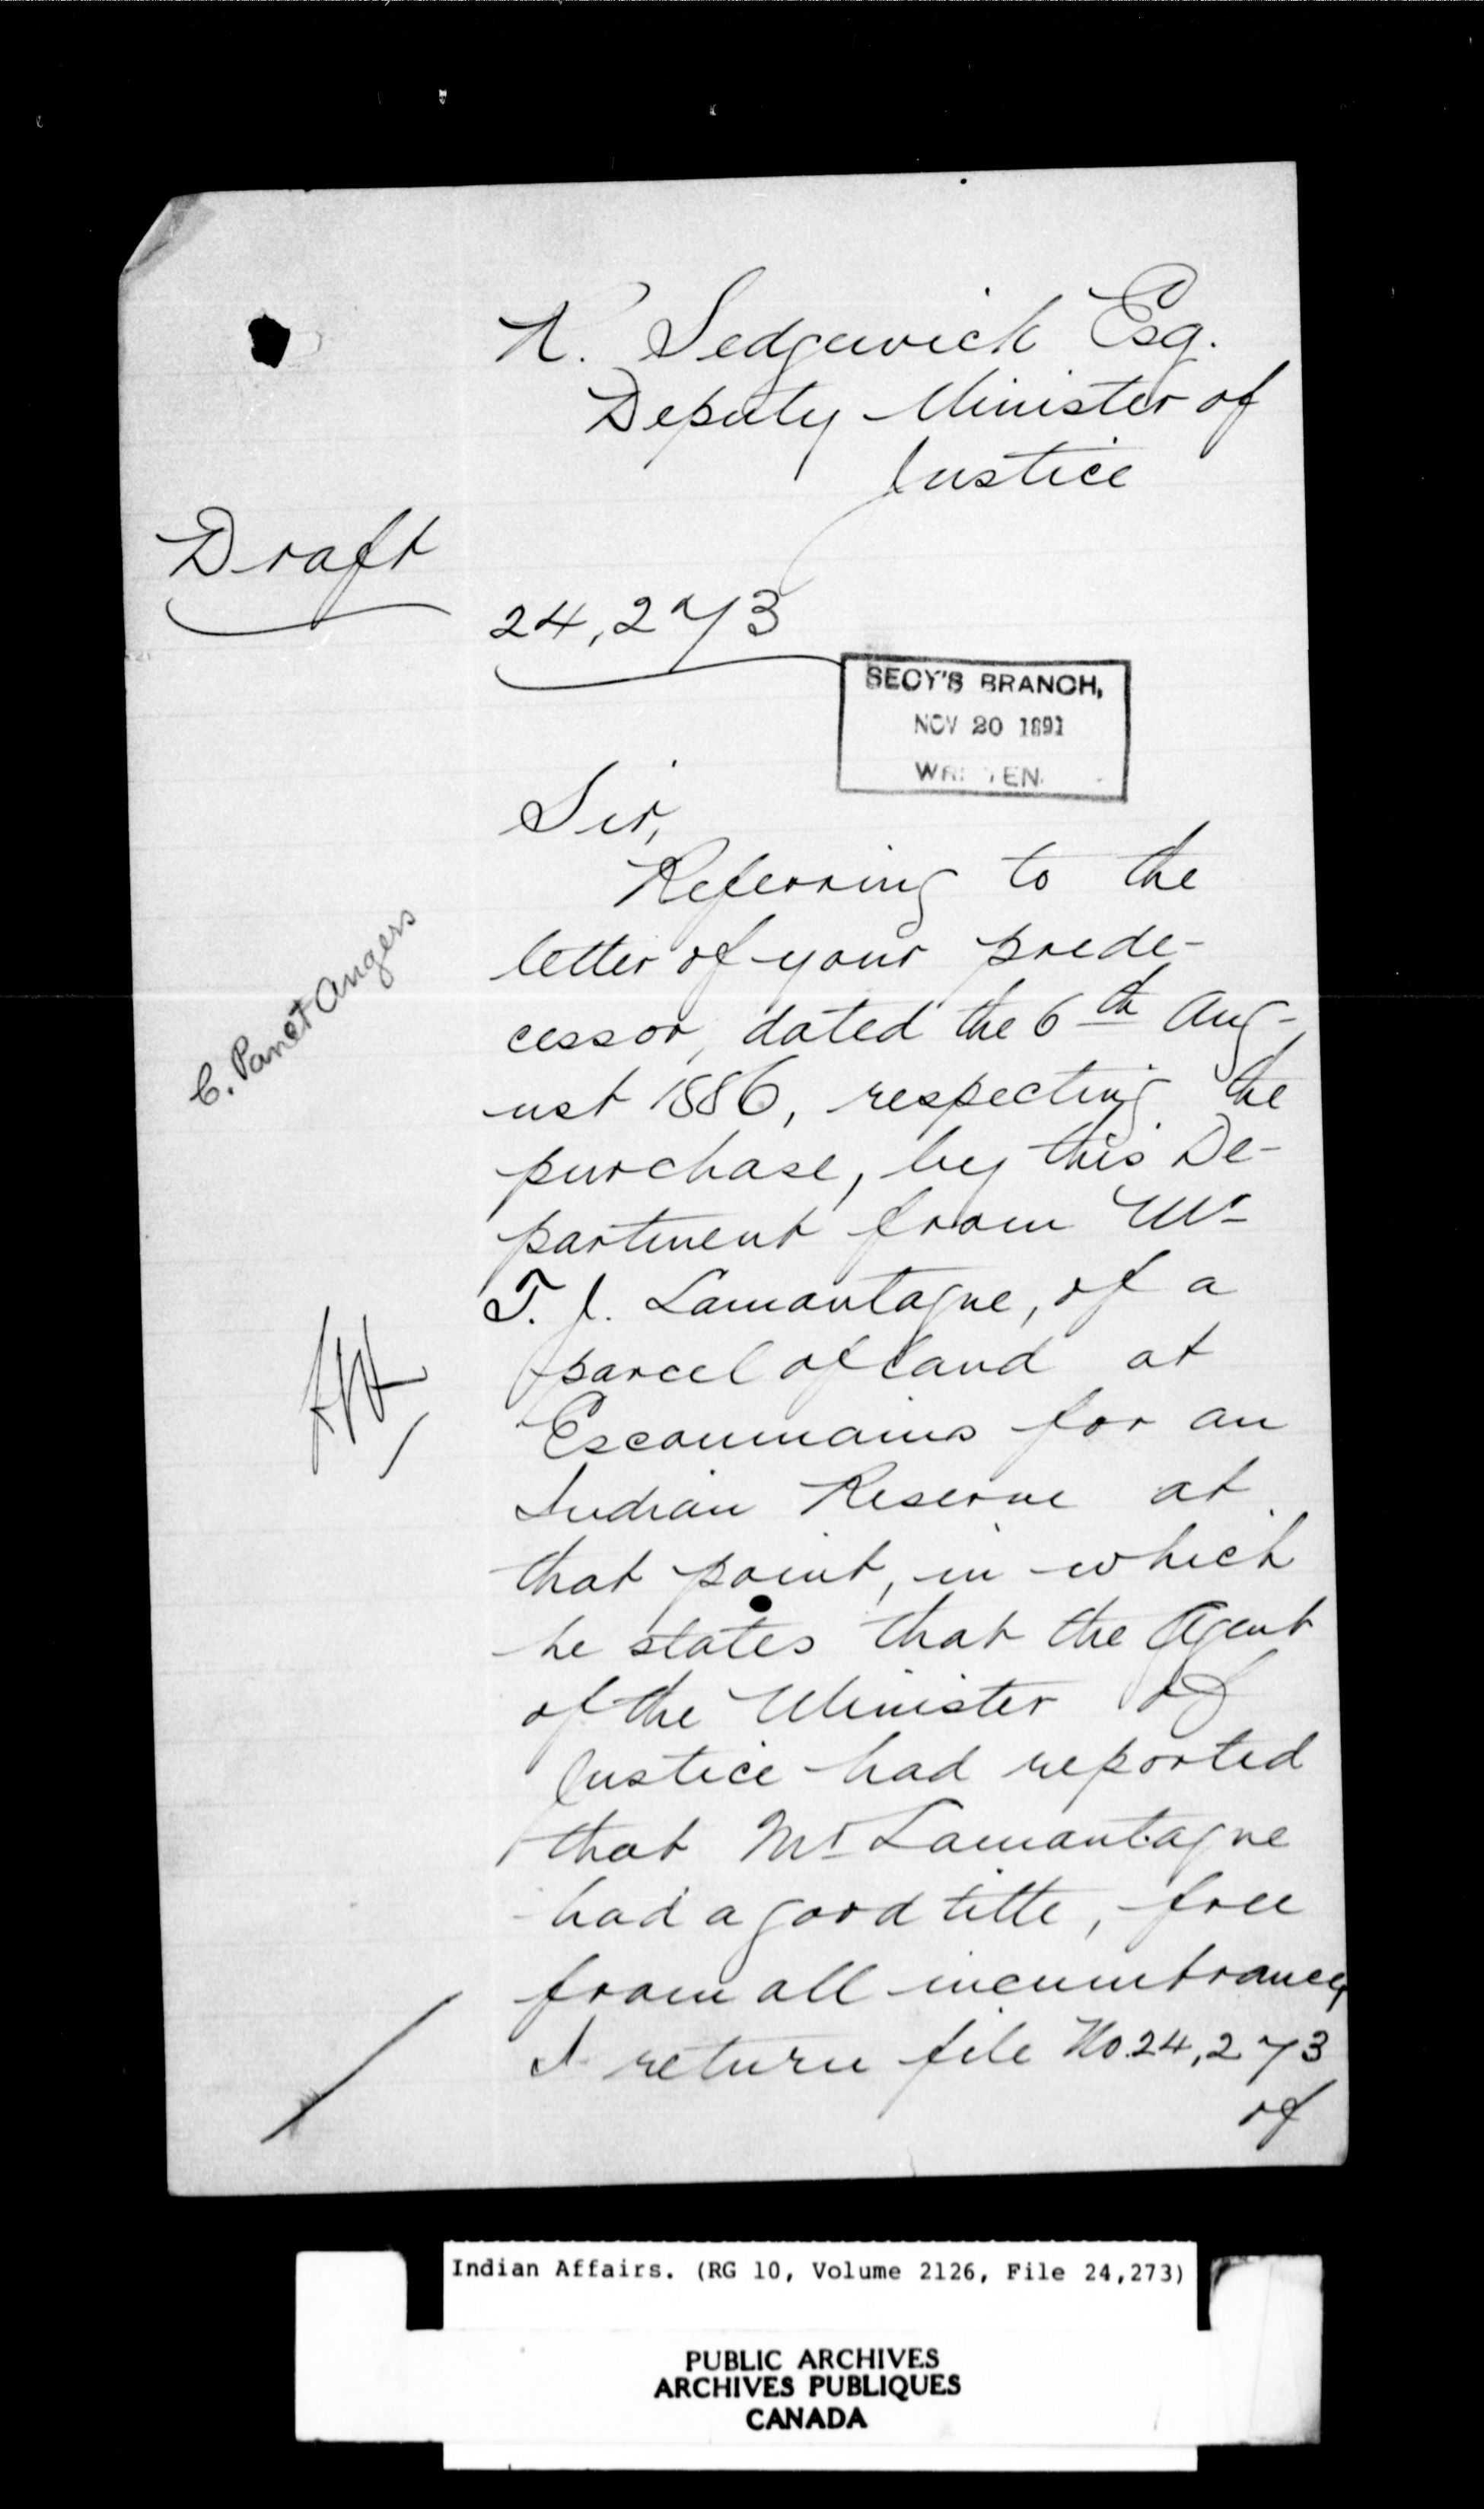 R. Sedgewick Esq.
Deputy Minister of
Justice
Draft
24,273
SECY'S BRANCH,
NOV 20 1891
WRITTEN.
Sir,
Referring to the
letter of your prede-
cessor, dated the 6th Aug-
ust 1886, respecting the
purchase, by this De-
partment from Mr
T. J. Lamontagne, of a
parcel of land at
Escoumains for an
Indian Reserve at
that point, in which
he states that the Agent
of the Minister of
Justice had reported
that Mr Lamontagne
had a good title, free
from all incumbrance,
I return file No. 24,273
of
C. Panet Angers
Indian Affairs. (RG 10, Volume 2126, File 24,273)
PUBLIC ARCHIVES
ARCHIVES PUBLIQUES
CANADA